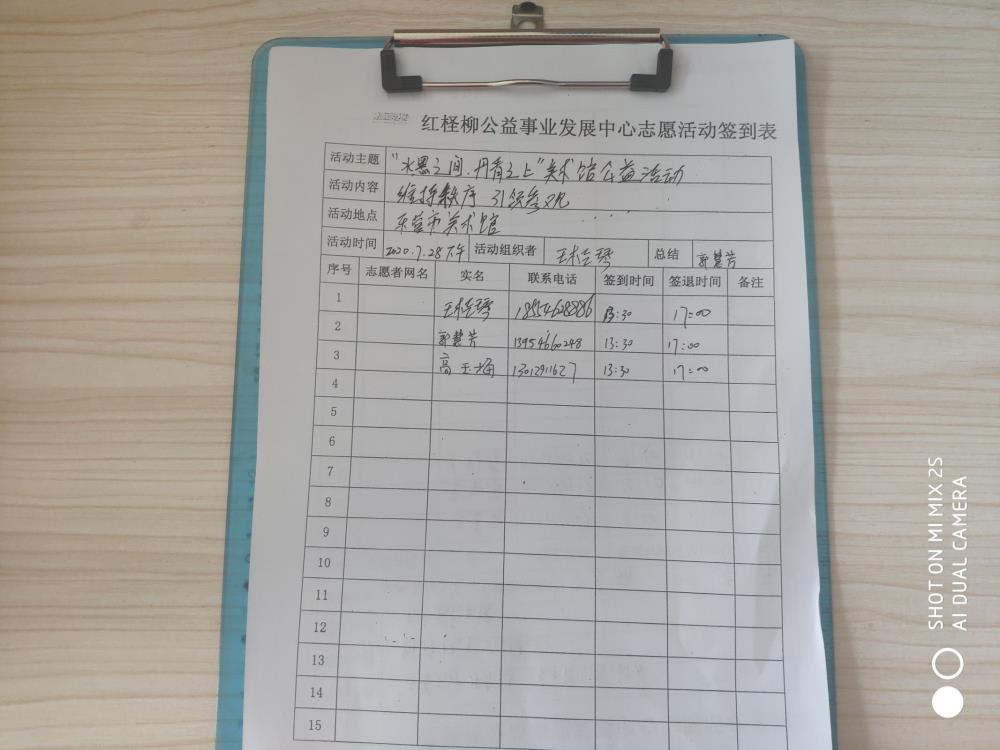 红柽柳公益事业发展中心志愿活动签到表
活动主题 "水墨之间.丹青之上"美术馆公益活动
活动内容 维持秩序 引领参观
活动地点 东营市美术馆
活动时间 2020.7.28下午 活动组织者 王桂琴 总结 郭慧芳
序号 志愿者网名 实名 联系电话 签到时间 签退时间 备注
1 王桂琴 18554628886 13:30 17:00
2 郭慧芳 13954660248 13:30 17:00
3 高玉海 1301291627 13:30 17:00
4
5
6
7
8
9
10
11
12
13
14
15
SHOT ON MI MIX 2S
AI DUAL CAMERA